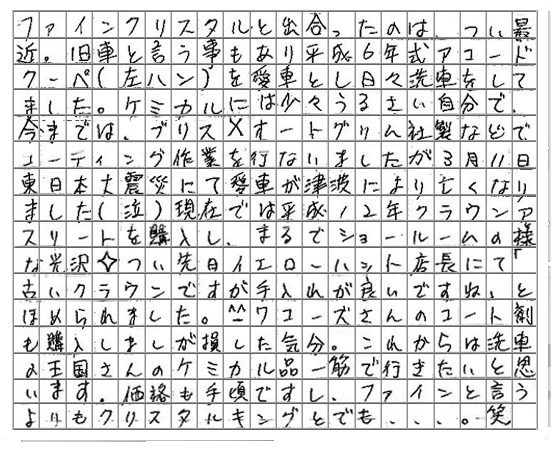 ファインクリスタルと出合ったのは　つい最
近。旧車と言う事もあり平成6年式アコード
クーペ(左ハン)を愛車とし日々洗車をして
ました。ケミカルには少々うるさい自分で、
今までは、ブリスXオートグリム社製などで
コーティング作業を行ないましたが3月11日
東日本大震災にて愛車が津波により亡くなり
ました(泣)現在では平成12年クラウンア
スリートを購入し、まるでショールームの様
な光沢✧つい先日イエローハット店長にて「
古いクラウンですが手入れが良いですね、と
ほめられました。^^ワコーズさんのコート剤
も購入しましが損した気分。これからは洗車
の王国さんのケミカル品一筋で行きたいと思
います。価格も手頃ですし、ファインと言う
よりもクリスタルキングとでも、、、。笑